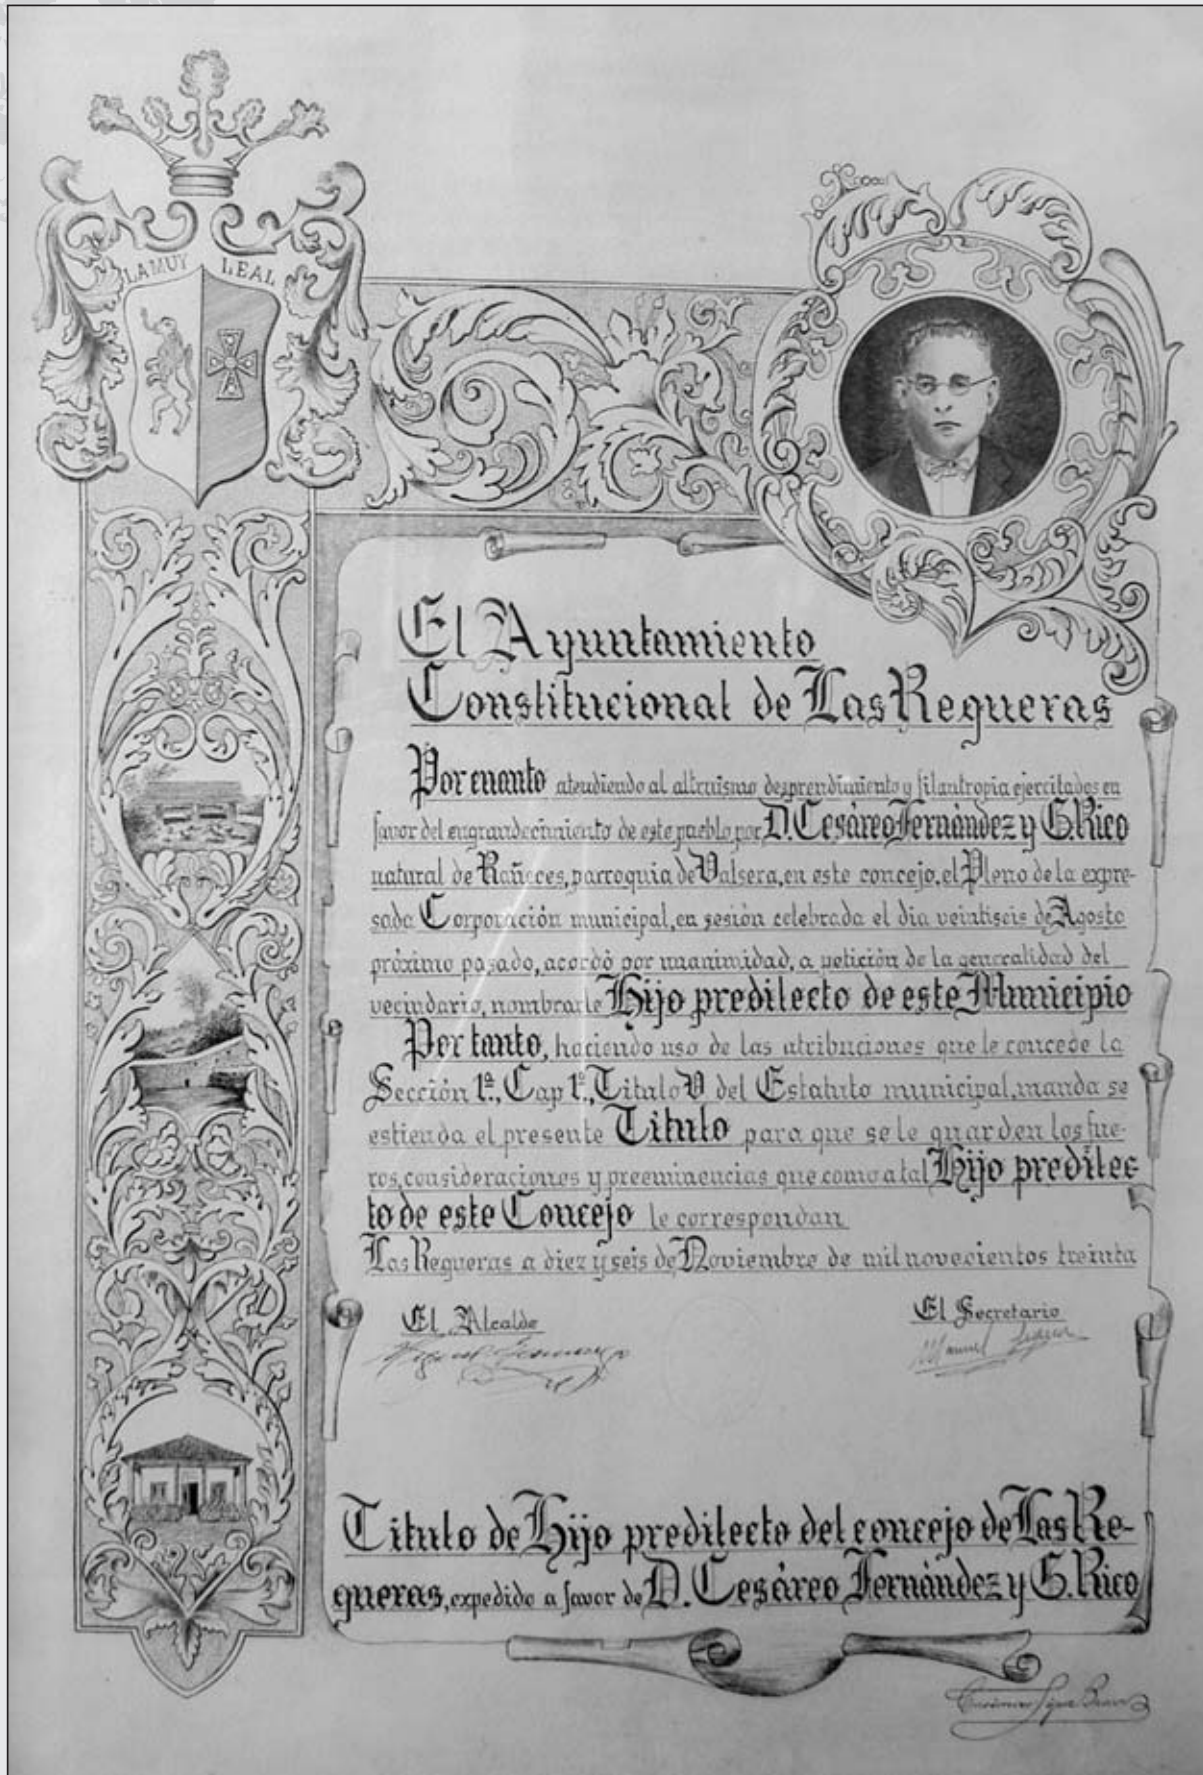 LA MUY LEAL
El Ayuntamiento
Constitucional de Las Regueras
Por cuanto atendiendo al altruismo desprendimiento y filantropia ejercitados en
favor del engrandecimiento de este pueblo por D. Cesáreo Fernández y G. Rico
natural de Rañeces, parroquia de Valsera, en este concejo, el Pleno de la expre-
sada Corporación municipal, en sesión celebrada el dia veintiseis de Agosto
próximo pasado, acordó por unanimidad, a petición de la generalidad del
vecindario, nombrarle Hijo predilecto de este Municipio
Por tanto, haciendo uso de las atribuciones que le concede la
Sección 1ª., Cap 1º., Titulo V del Estatuto municipal, manda se
estienda el presente Titulo para que se le guarden los fue-
ros, consideraciones y preeminencias que como a tal Hijo predilec
to de este Concejo le correspondan
Las Regueras a diez y seis de Noviembre de mil novecientos treinta
El Alcalde
El Secretario
Manuel
Titulo de Hijo predilecto del concejo de Las Re-
gueras, expedido a favor de D. Cesáreo Fernández y G. Rico